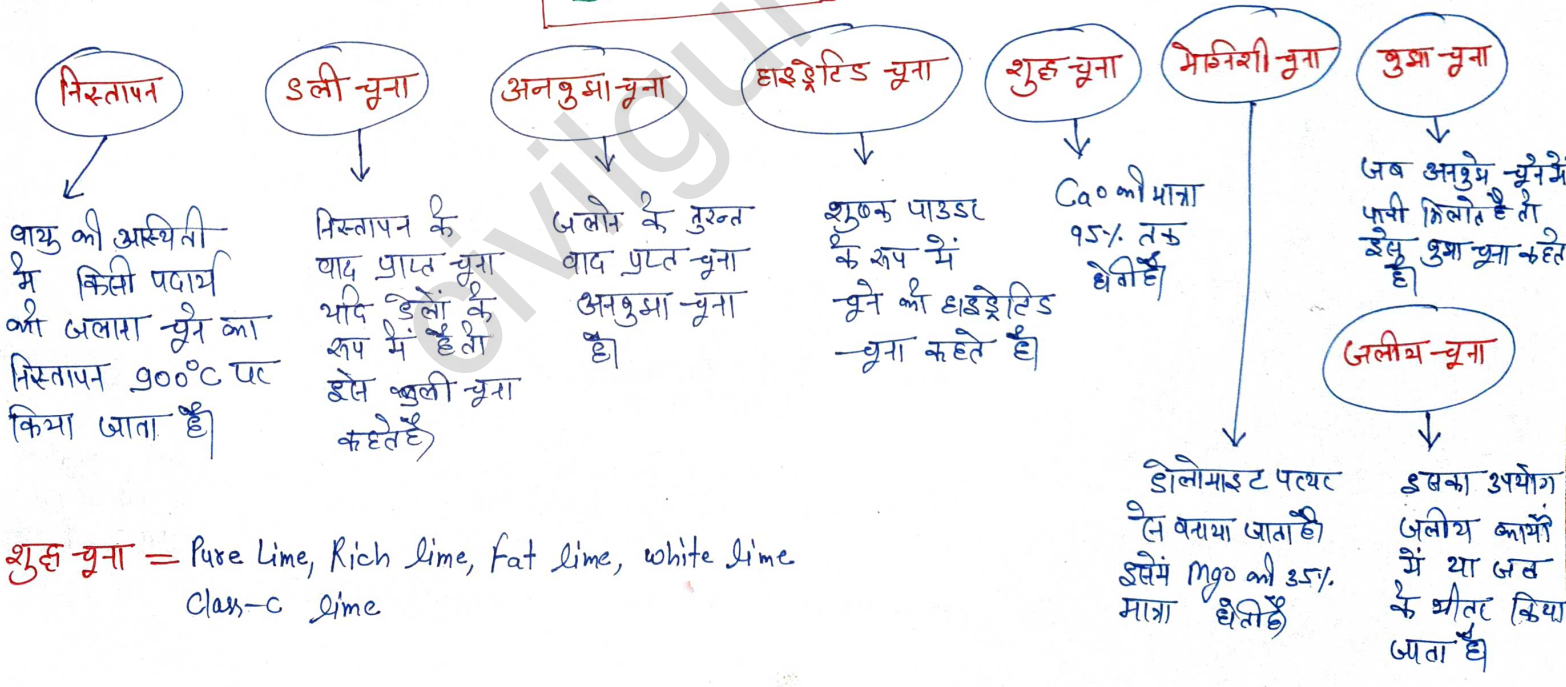 निस्तापन
वायु की आस्थिती
मे किसी पदार्थ
को जलाना चूने का
निस्तापन 900°C पर
किया जाता है।
डली चूना
निस्तापन के
वाद प्राप्त चूना
यदि डेलों के
रूप में है तो
इसे डली चूना
कहते है
अनबुझा चूना
जलाने के तुरन्त
वाद प्राप्त चूना
अनबुझा चूना
है।
हाइड्रेटिड चूना
शुष्क पाउडर
के रूप में
चूने को हाइड्रेटिड
चूना कहते है।
शुद्ध चूना
CaO की मात्रा
95% तक
होती है।
मेग्निशी चूना
डोलोमाइट पत्थर
से बनाया जाता है।
इसमें MgO की 35%
मात्रा होती है
बुझा चूना
जब अनबुझे चूने में
पानी मिलाते है तो
इसे बुझा चूना कहते
है।
जलीय चूना
इसका उपयोग
जलीय कार्यों
में या जल
के भीतर किया
जाता है।
शुद्ध चूना = Pure Lime, Rich lime, Fat lime, white lime
Class-C lime